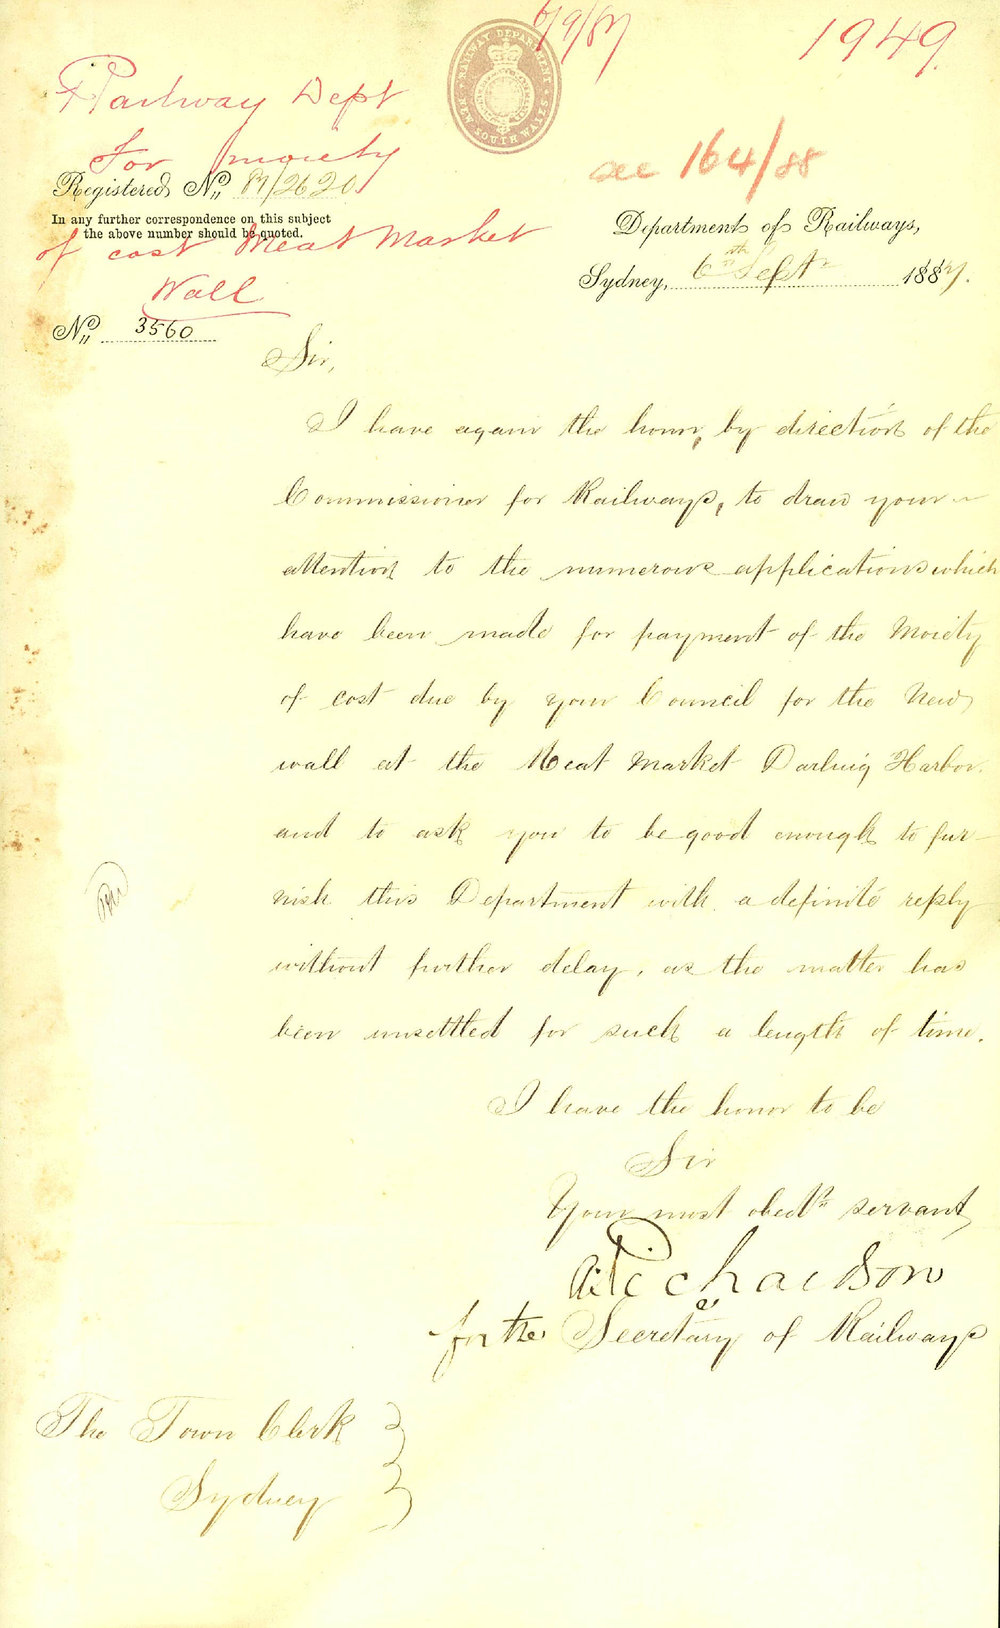 6/9/87
1949.
Railway Dept
For moiety
of cost Meat Market
Wall
see 164/88
RAILWAY DEPARTMENT
NEW SOUTH WALES
Registered No. 87/2620
In any further correspondence on this subject
the above number should be quoted.
No. 3560
Department of Railways,
Sydney, 6th Septr 1887.
Sir,
I have again the honor, by direction of the
Commissioner for Railways, to draw your
attention to the numerous applications which
have been made for payment of the Moiety
of cost due by your Council for the New
wall at the Meat Market Darling Harbor.
and to ask you to be good enough to fur-
nish this Department with a definite reply
without further delay, as the matter has
been unsettled for such a length of time.
I have the honor to be
Sir
Your most obedt servant
Richardson
for the Secretary of Railways
The Town Clerk
Sydney